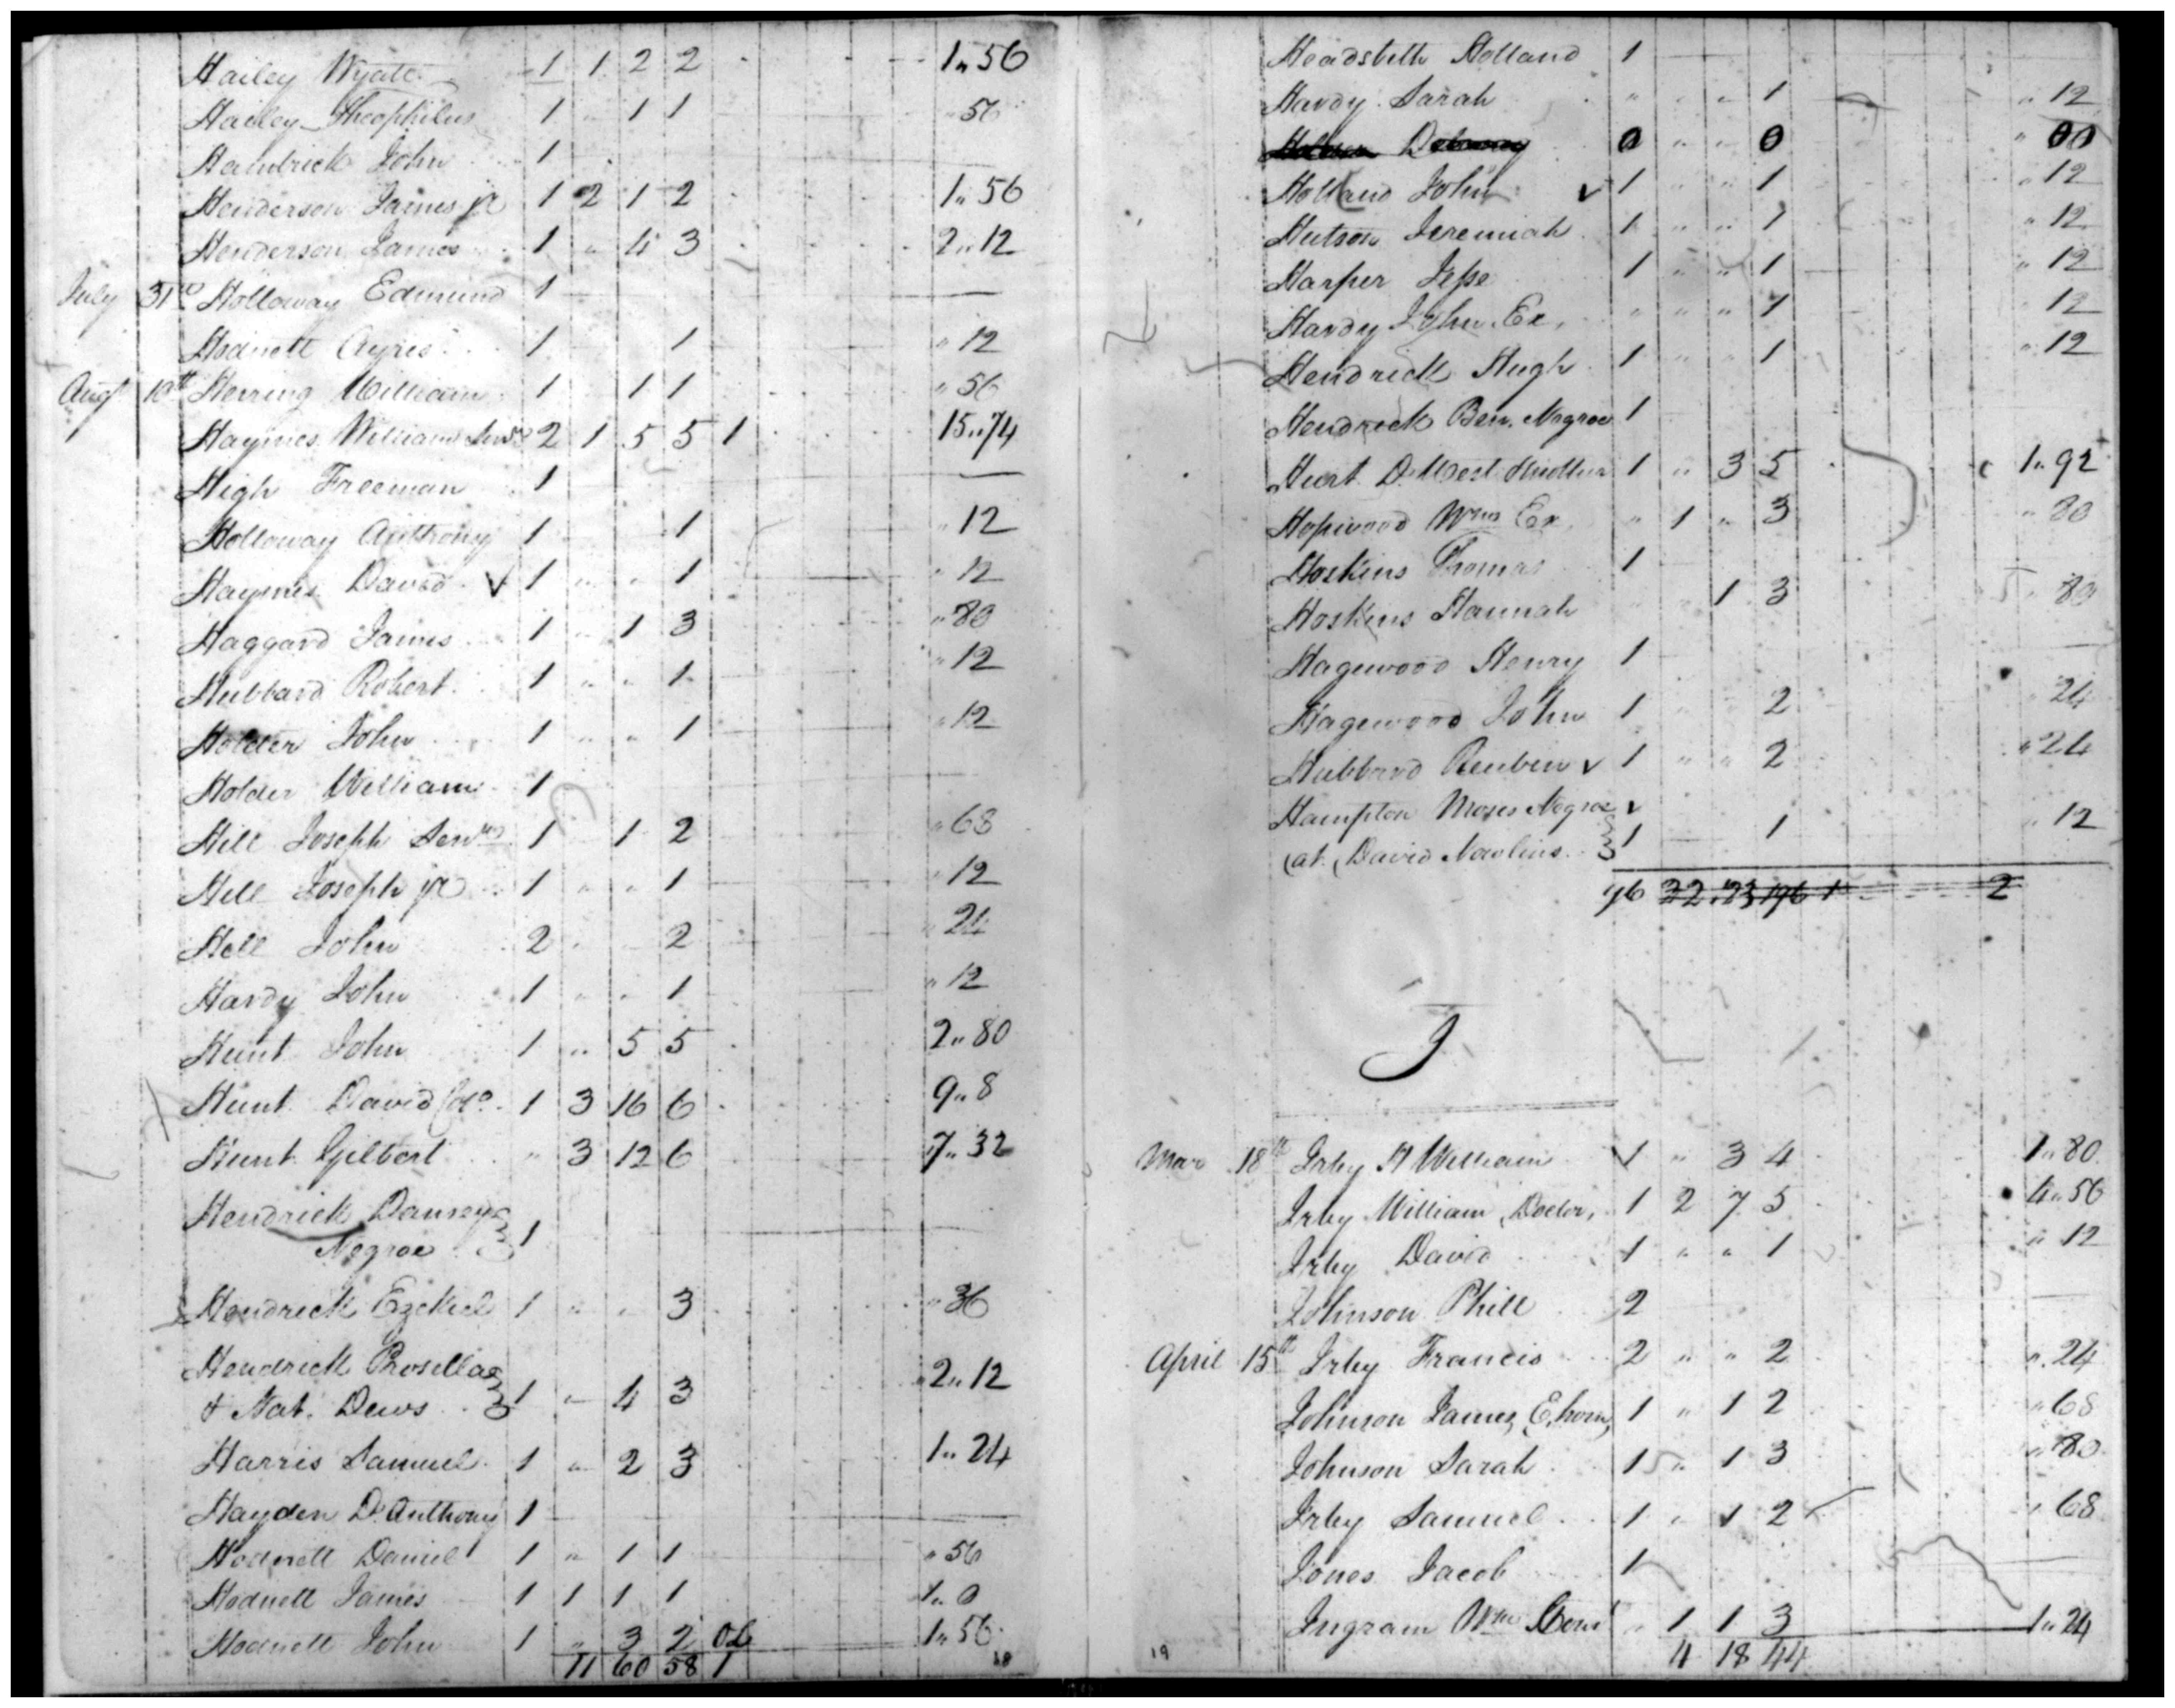 Hailey Wyatt 1 1 2 2 1„56
Hailey Theophilus 1 „ 1 1 „56
Hambrick John 1
Henderson James jr 1 2 1 2 1„56
Henderson James 1 „ 4 3 2„12
July 31st Holloway Edmund 1
Hodnett Ayres 1 1 „12
Augt 10th Herring William 1 1 1 „56
Haymes William Senr 2 1 5 5 1 15„74
High Freeman 1
Holloway Anthony 1 1 „12
Haymes David ✓ 1 „ „ 1 „12
Haggard James 1 „ 1 3 „80
Hubbard Robert 1 „ „ 1 „12
Holder John 1 „ „ 1 „12
Holder William 1
Hill Joseph Senr 1 1 2 „68
Hill Joseph jr 1 „ „ 1 „12
Hill John 2 2 „24
Hardy John 1 „ „ 1 „12
Hunt John 1 „ 5 5 2„80
Hunt David 1 3 16 6 9„8
Hunt Gilbert „ 3 12 6 7„32
Hendrick
Negroe 1
Hendrick Ezekiel 1 „ „ 3 „36
Hendrick
& Nat. Dews 1 „ 4 3 2„12
Harris Samuel 1 „ 2 3 1„24
Hayden D. Anthony 1
Hodnett Daniel 1 „ 1 1 „56
Hodnett James 1 1 1 1 1„0
Hodnett John 1 „ 3 2 1„56
11 60 58 1
18
Headsbeth Holland 1
Hardy Sarah „ „ „ 1 „12
0 „ „ 0 „00
Holland John ✓ 1 „ „ 1 „12
Hutson Jeremiah 1 „ „ 1 „12
Harper Jesse 1 „ „ 1 „12
Hardy John Ex. „ „ „ 1 „12
Hendrick Hugh 1 „ „ 1 „12
Hendrick Ben. Negroe 1
Hurt D. West 1 „ 3 5 1„92
Hopwood Wm Ex. „ 1 „ 3 „80
Hoskins Thomas 1
Hoskins Hannah „ „ 1 3 „80
Hagewood Henry 1
Hagewood John 1 2 „24
Hubbard Reuben ✓ 1 „ „ 2 „24
Hampton Moses Negroe ✓
(at David Nowlins 1 1 „12
96 32 123 196 1 2
J
Mar 18th Irby H William 1 „ 3 4 1„80
Irby William, Doctor, 1 2 7 5 4„56
Irby David 1 „ „ 1 „12
Johnson Phill 2
April 15th Irby Francis 2 „ „ 2 „24
Johnson James 1 „ 1 2 „68
Johnson Sarah 1 „ 1 3 „80
Irby Samuel 1 „ 1 2 „68
Jones Jacob 1
Ingram Wm „ 1 1 3 1„24
19 4 18 44